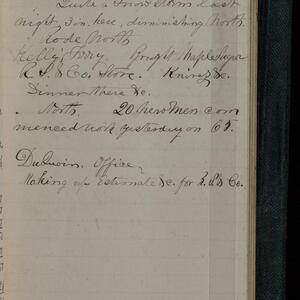 Quite a Snow Storm last
night, 3 in. here, diminishing North.
Rode North
Kelly's Ferry Bought Maple Sugar
R. S. & Co. Store. &c.
Dinner there &c.
North. 20 new men com
menced work yesterday on 65.
DuQuoin. Office
Making up Estimate &c. for R. S. & Co.